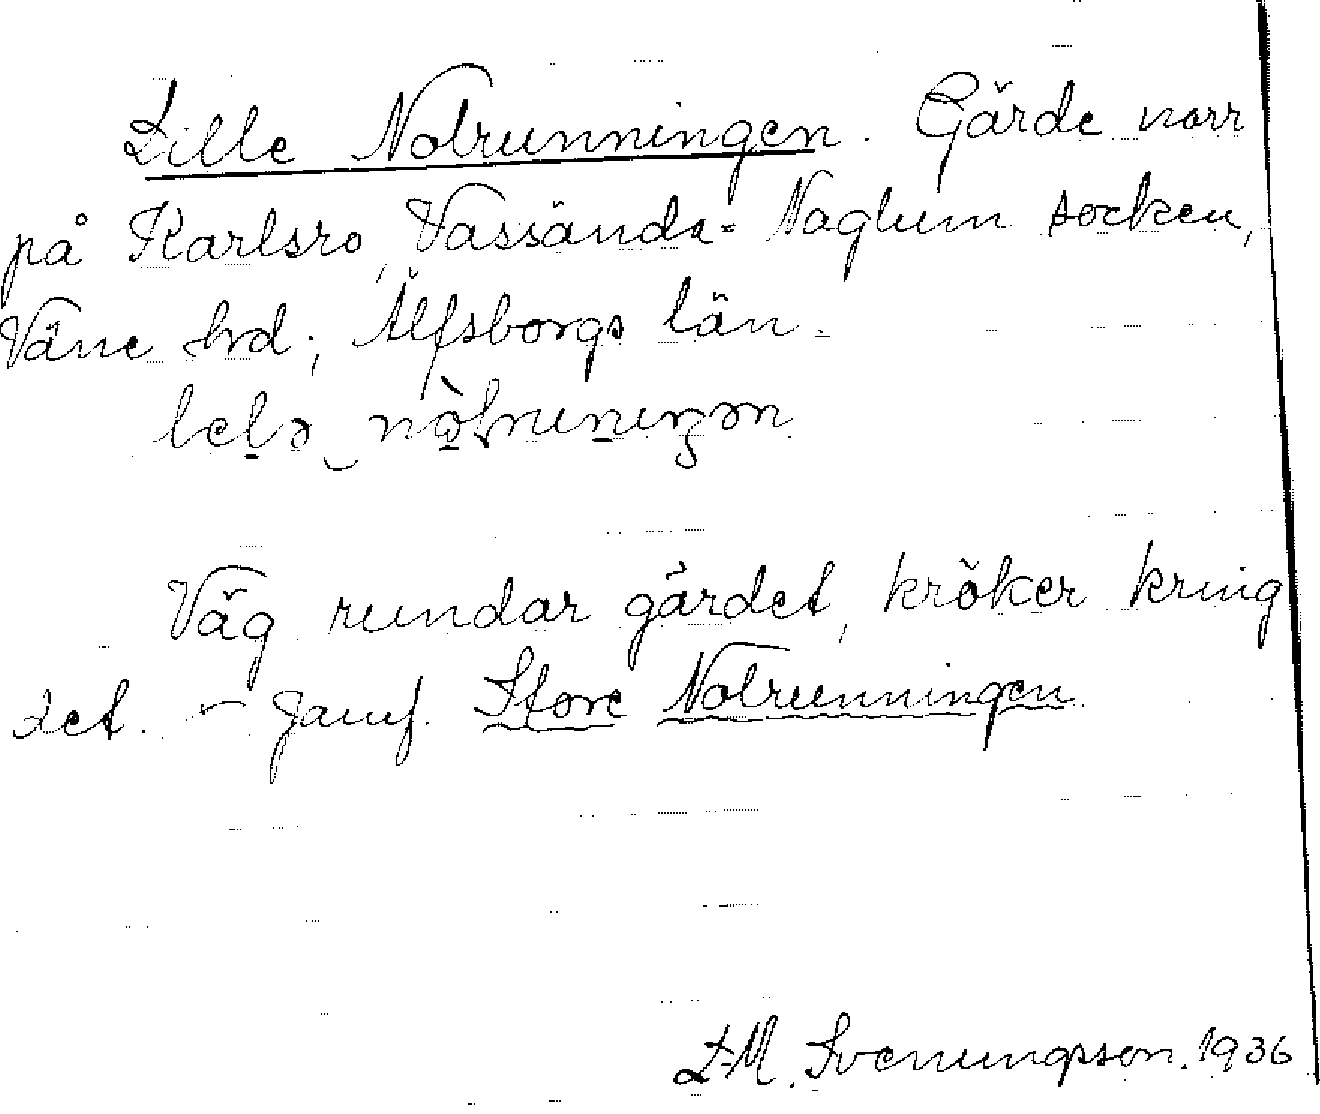 Lille Notrunningen. Gärde norr
på Karlsro, Vassända-Naglum socken,
Väne hrd; Älfsborgs län.
Väg rundar gärdet, kröker kring
det. - Jämf. Store Notrunningen.
L-M. Svenungsson. 1936